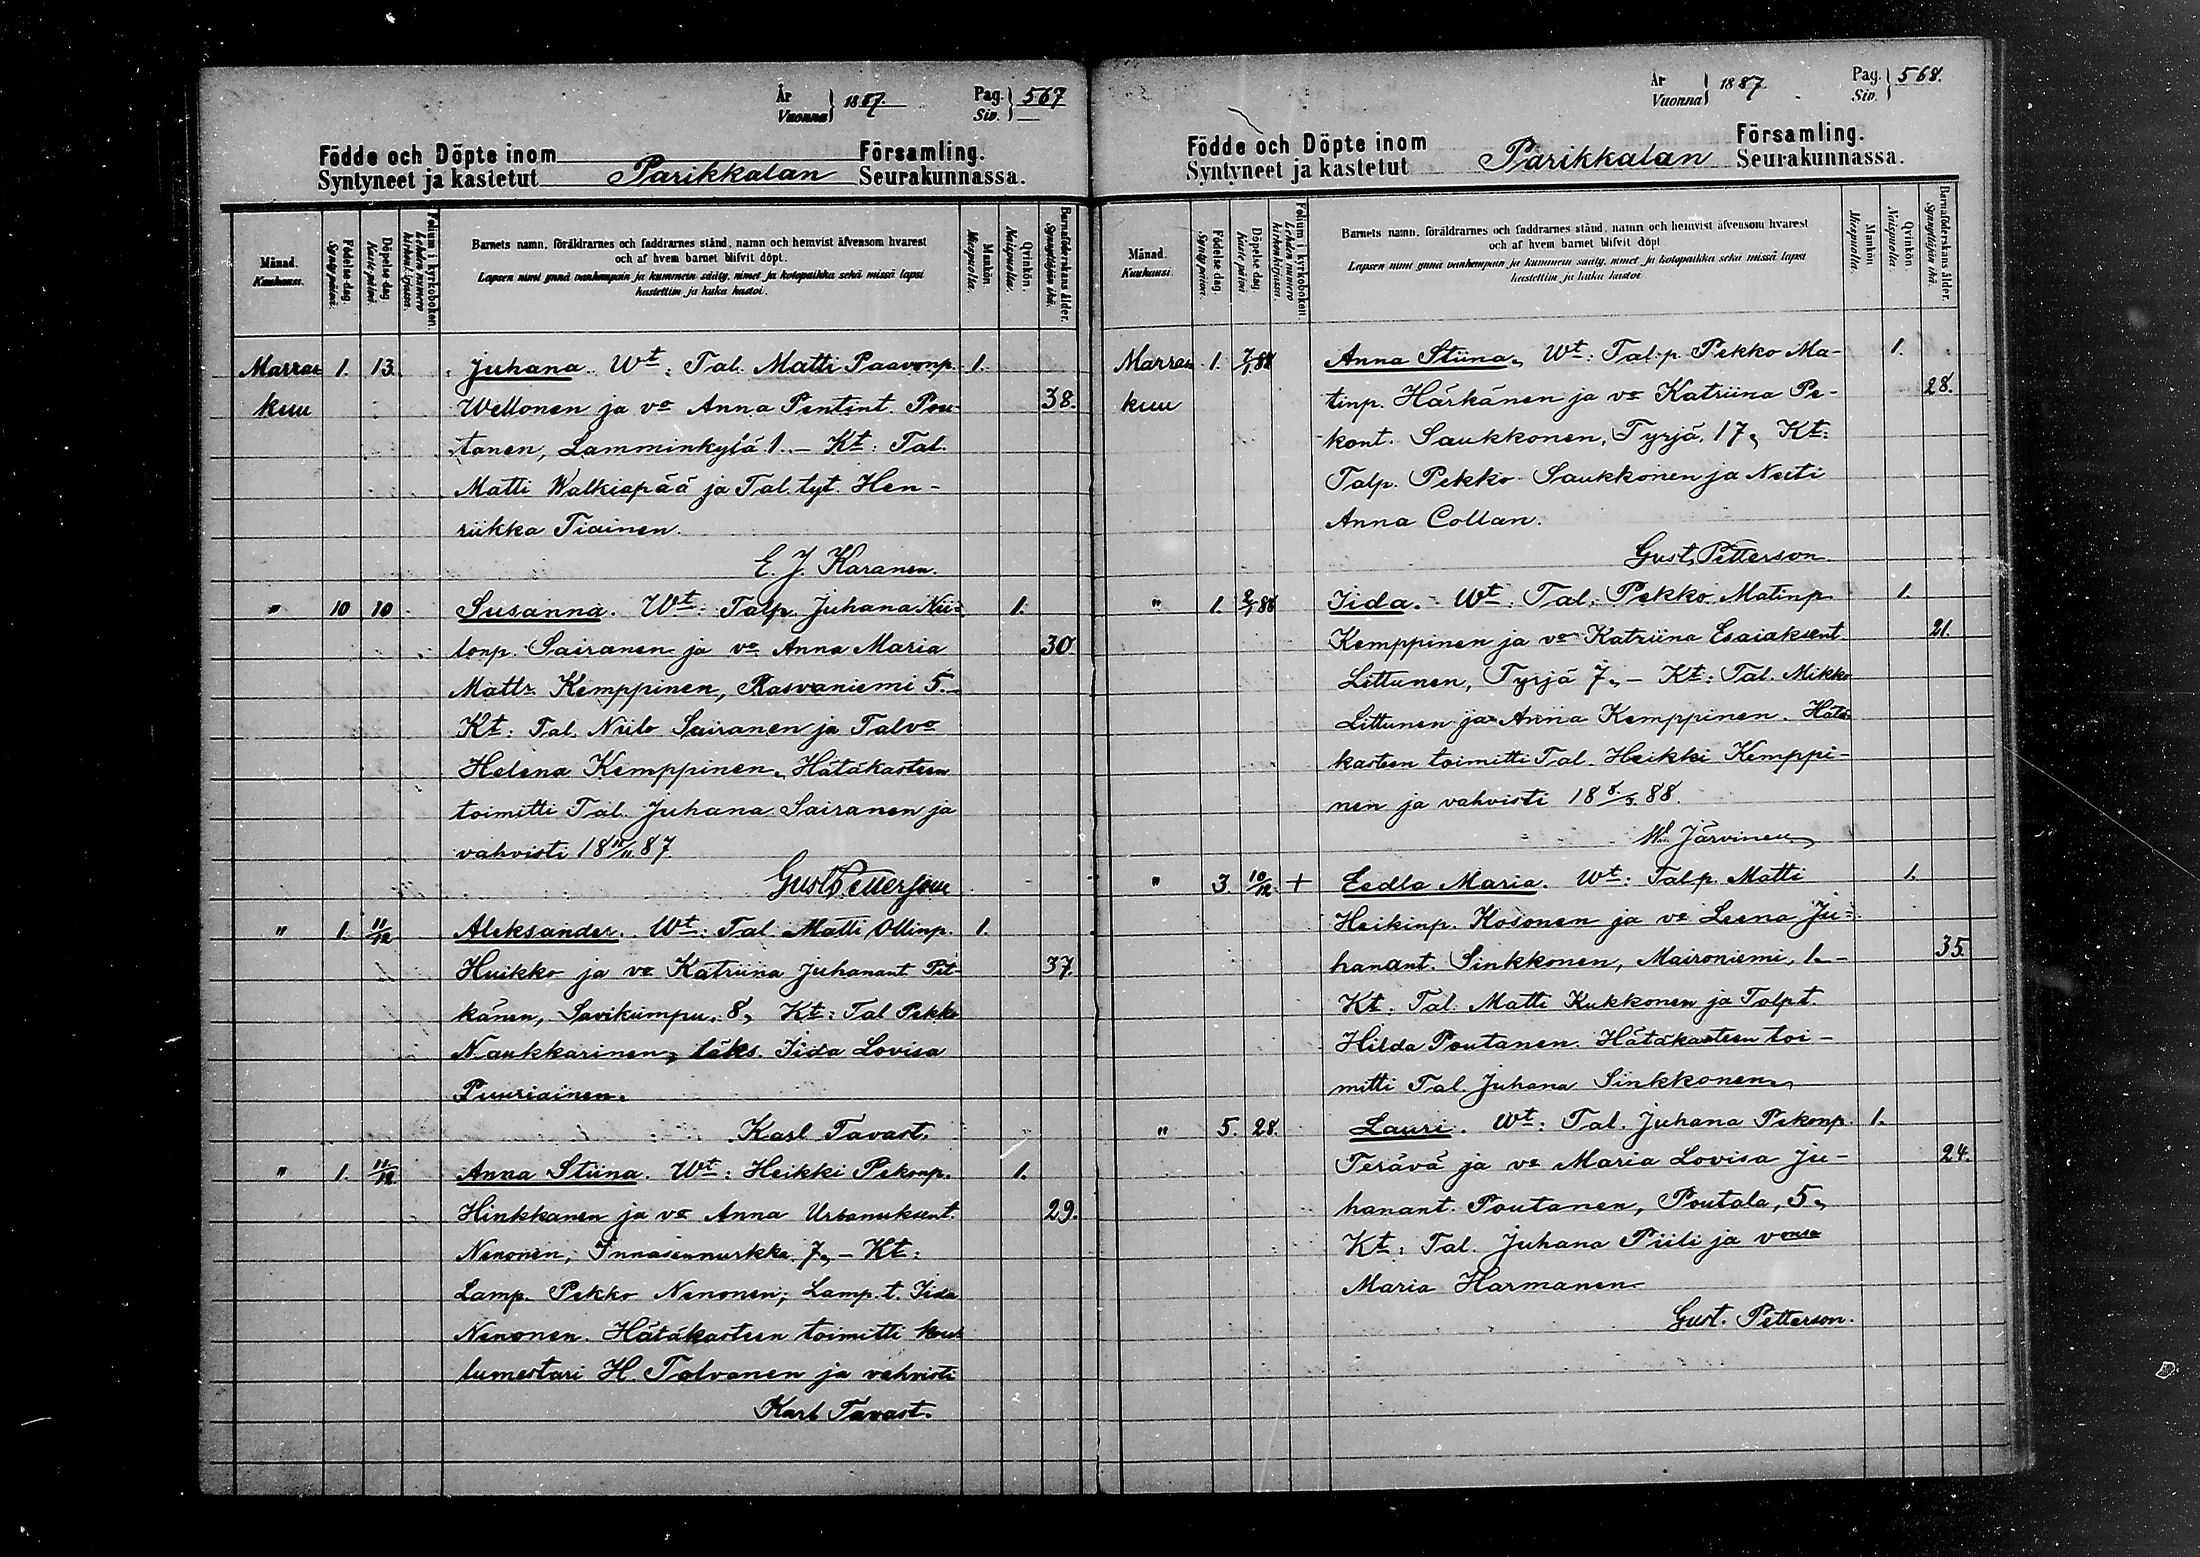 År
Vuonna } 1887.
Pag.
Siv. } 567
Födde och Döpte inom Församling.
Syntyneet ja kastetut Parikkalan Seurakunnassa.
Månad.
Kuukausi.
Födelse-dag.
Syntypäivä.
Döpelse-dag.
Kaste-päivä.
Folium i kyrkoboken.
Lehden numero kirkonkirjassa.
Barnets namn, föräldrarnes och faddrarnes stånd, namn och hemvist äfvensom hvarest
och af hvem barnet blifvit döpt.
Lapsen nimi ynnä vanhempain ja kummein sääty, nimet ja kotopaikka sekä missä lapsi
kastettiin ja kuka kastoi.
Mankön.
Miespuolia.
Qvinkön.
Naispuolia.
Barnaföderskans ålder.
Synnyttäjän ikä.
Marras 1. 13. Juhana. Wt: Tal. Matti Paavonp. 1.
kuu Wellonen ja vo Anna Pentint. Pou- 38.
tanen, Lamminkylä 1. – Kt: Tal.
Matti Walkiapää ja Tal. tyt. Hen-
riikka Tiainen.
E. J. Karanen.
" 10 10 Susanna. Wt: Talp. Juhana Nii- 1.
lonp. Sairanen ja vo Anna Maria 30.
Mattr. Kemppinen, Rasvaniemi 5. –
Kt: Tal. Niilo Sairanen ja Talvo
Helena Kemppinen. Hätäkasteen
toimitti Tal. Juhana Sairanen ja
vahvisti 18 11/11 87.
Gust Petterson
" 1. 11/12 Aleksander. Wt: Tal. Matti Ollinp. 1.
Huikko ja vo Katriina Juhanant Pit- 37.
känen, Savikumpu. 8, Kt: Tal Pekko
Naukkarinen, läks. Iida Lovisa
Puuriainen.
Karl Tavast.
" 1. 11/12 Anna Stiina. Wt: Heikki Pekonp. 1.
Hinkkanen ja vo Anna Urbanuksent. 29.
Nenonen, Innasennurkka 7, – Kt:
Lamp. Pekko Nenonen; Lamp. t. Iida
Nenonen. Hätäkasteen toimitti kou-
lumestari H. Tolvanen ja vahvisti
Karl Tavast.
År
Vuonna } 1887.
Pag.
Siv. } 568.
Födde och Döpte inom Församling.
Syntyneet ja kastetut Parikkalan Seurakunnassa.
Månad.
Kuukausi.
Födelse-dag.
Syntypäivä.
Döpelse-dag.
Kaste-päivä.
Folium i kyrkoboken.
Lehden numero kirkonkirjassa.
Barnets namn, föräldrarnes och faddrarnes stånd, namn och hemvist äfvensom hvarest
och af hvem barnet blifvit döpt
Lapsen nimi ynnä vanhempain ja kummein sääty, nimet ja kotopaikka sekä missä lapsi
kastettiin ja kuka kastoi
Mankön
Miespuolia.
Qvinkön.
Naispuolia.
Barnaföderskans ålder.
Synnyttäjän ikä.
Marras 1. 7/1 88 Anna Stiina. Wt: Tal.p. Pekko Ma- 1.
kuu tinp. Härkänen ja vo Katriina Pe- 28.
kont. Saukkonen, Tyrjä. 17, Kt:
Talp. Pekko Saukkonen ja Neiti
Anna Collan.
Gust. Petterson.
" 1. 2/1 88 Iida. Wt: Tal. Pekko Matinp. 1.
Kemppinen ja vo Katriina Esaiaksent 21.
Littunen, Tyrjä 7, – Kt: Tal. Mikko
Littunen ja Anna Kemppinen. Hätä-
kasteen toimitti Tal. Heikki Kemppi-
nen ja vahvisti 18 88.
W. Järvinen
" 3. 10/12 + Eedla Maria. Wt: Talp. Matti 1.
Heikinp. Kosonen ja vo Leena Ju-
hanant. Sinkkonen, Maironiemi, 1. – 35.
Kt: Tal. Matti Kukkonen ja Talp t.
Hilda Poutanen. Hätäkasteen toi-
mitti Tal. Juhana Sinkkonen.
" 5. 28. Lauri. Wt: Tal. Juhana Pekonp. 1.
Terävä ja vo Maria Lovisa Ju- 24.
hanant. Poutanen, Poutala, 5,
Kt: Tal. Juhana Piili ja vonsa
Maria Harmanen.
Gust. Petterson.